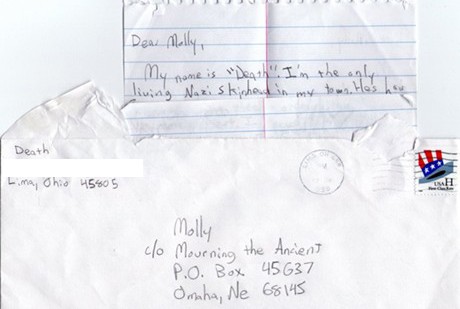 Dear Molly,
My name is "Death". I'm the only
living Nazi skinhead in my town.
Death
Lima, Ohio 45805
USA H
Molly
c/o Mourning the Ancient
P.O. Box 45637
Omaha, Ne 68145